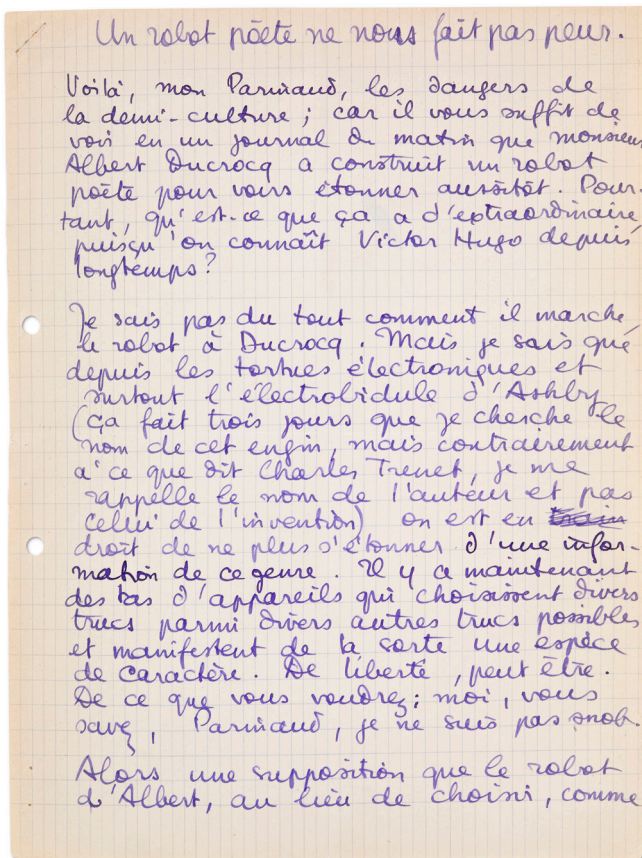 Un robot poète ne nous fait pas peur.
Voilà, mon Parinaud, les dangers de
la demi-culture ; car il vous suffit de
voir en un journal du matin que monsieur
Albert Ducrocq a construit un robot
poète pour vous étonner aussitôt. Pour-
tant, qu'est-ce que ça a d'extraordinaire
puisqu'on connaît Victor Hugo depuis
longtemps ?
Je sais pas du tout comment il marche
le robot à Ducrocq. Mais je sais que
depuis les tortues électroniques et
surtout l'électrobidule d'Ashby
(ça fait trois jours que je cherche le
nom de cet engin, mais contrairement
à ce que dit Charles Trenet, je me
rappelle le nom de l'auteur et pas
celui de l'invention) on est en train
droit de ne plus s'étonner d'une infor-
mation de ce genre. Il y a maintenant
des tas d'appareils qui choisissent divers
trucs parmi divers autres trucs possibles
et manifestent de la sorte une espèce
de caractère. De liberté, peut être.
De ce que vous voudrez ; moi, vous
savez, Parinaud, je ne suis pas snob.
Alors une supposition que le robot
d'Albert, au lieu de choisir, comme